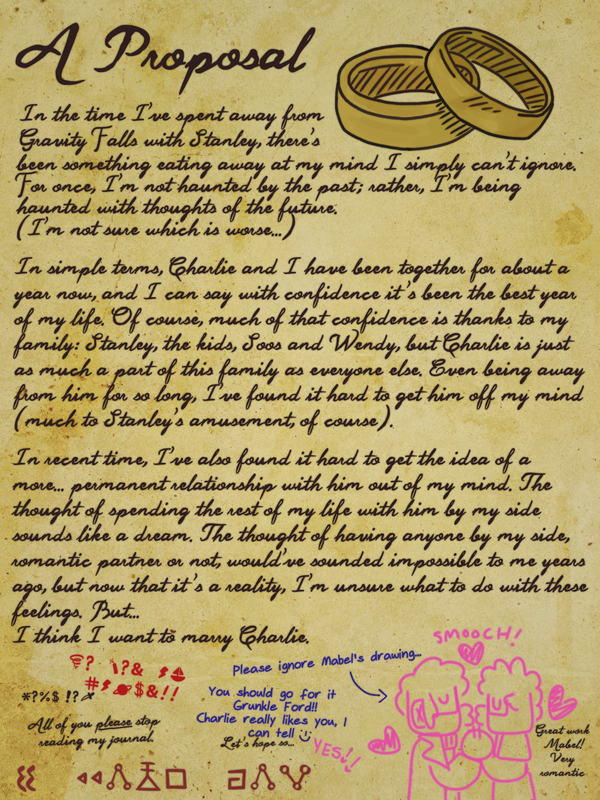 A Proposal
In the time I've spent away from
Gravity Falls with Stanley, there's
been something eating away at my mind I simply can't ignore.
For once, I'm not haunted by the past; rather, I'm being
haunted with thoughts of the future.
(I'm not sure which is worse...)
In simple terms, Charlie and I have been together for about a
year now, and I can say with confidence it's been the best year
of my life. Of course, much of that confidence is thanks to my
family: Stanley, the kids, Soos and Wendy, but Charlie is just
as much a part of this family as everyone else. Even being away
from him for so long, I've found it hard to get him off my mind
(much to Stanley's amusement, of course).
In recent time, I've also found it hard to get the idea of a
more... permanent relationship with him out of my mind. The
thought of spending the rest of my life with him by my side
sounds like a dream. The thought of having anyone by my side,
romantic partner or not, would've sounded impossible to me years
ago, but now that it's a reality, I'm unsure what to do with these
feelings. But...
I think I want to marry Charlie.
SMOOCH!
Please ignore Mabel's drawing...
*?%$ !?
All of you please stop
reading my journal.
You should go for it
Grunkle Ford!!
Charlie really likes you, I
can tell
Let's hope so...
YES!!
Great work
Mabel!
Very
romantic